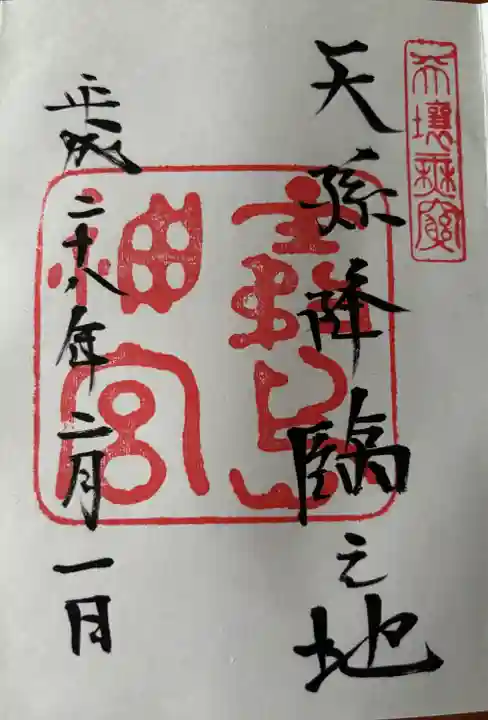 天壤無窮
天孫降臨之地
霧島
神宮
平成二十八年二月一日